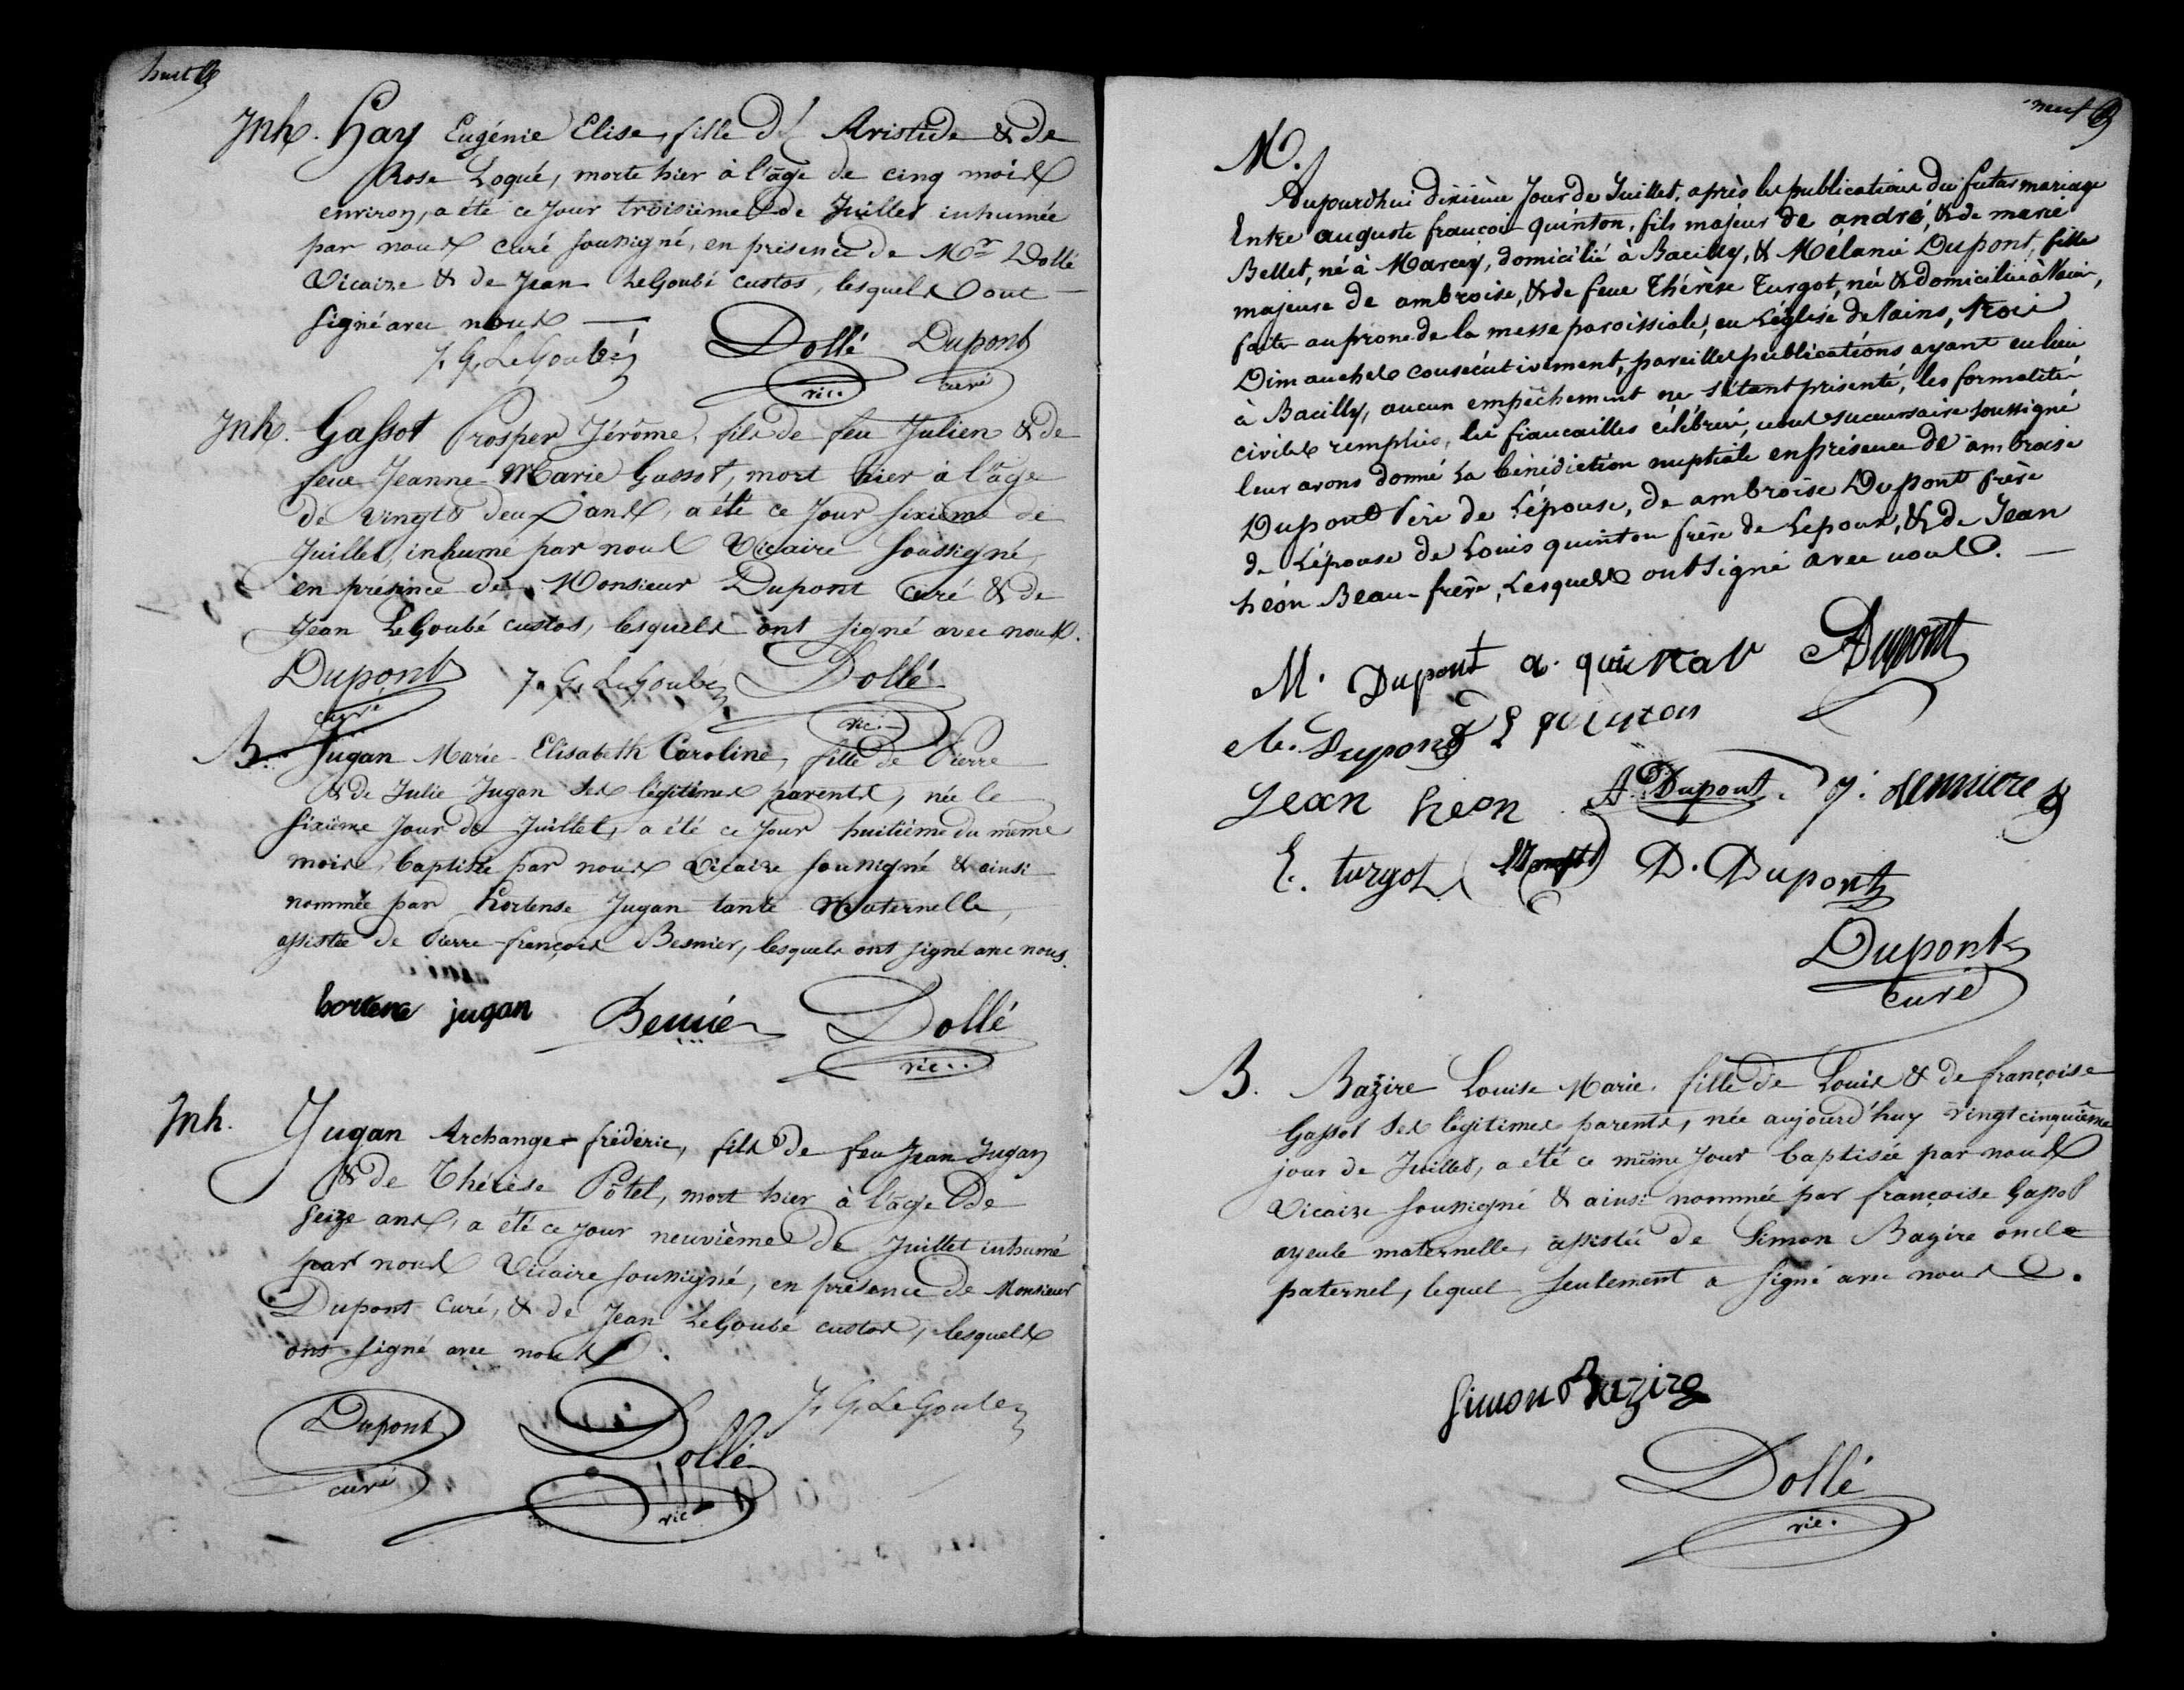 huit
Inh. Hay Eugénie Elise, fille d' Aristide & de
Rose Loqué, morte hier à l'âge de cinq mois
environ, a été ce Jour troisième de Juillet inhumée
par nous curé soussigné, en présence de Mr Dollé
Vicaire & de Jean LeGoubé custos, lesquels ont
signé avec nous
J. G. LeGoubé Dollé Dupont
vic. curé
Inh. Gassot Prosper Jérôme, fils de feu Julien & de
feue Jeanne Marie Gassot, mort hier à l'âge
de vingt deux ans, a été ce Jour sixième de
Juillet, inhumé par nous Vicaire soussigné,
en présence de Monsieur Dupont Curé & de
Jean LeGoubé custos, lesquels ont signé avec nous.
Dupont J. G. LeGoubé Dollé
curé vic.
B. Jugan Marie-Elisabeth Caroline, fille de Pierre
& de Julie Jugan ses légitimes parents, née le
sixième Jour de Juillet, a été ce Jour huitième du même
mois, baptisée par nous Vicaire soussigné & ainsi
nommée par Hortense Jugan tante Maternelle,
assistée de Pierre-françois Besnier, lesquels ont signé avec nous.
hortense jugan Besnier Dollé
vic..
Inh. Jugan Archange-frédéric, fils de feu Jean Jugan
& de Thérèse Pôtel, mort hier à l'âge de
seize ans, a été ce jour neuvième de Juillet inhumé
par nous Vicaire soussigné, en présence de Monsieur
Dupont Curé, & de Jean LeGoubé custos, lesquels
ont signé avec nous.
Dupont Dollé J. G. LeGoubé
curé vic
neuf
M.
Aujourdhui dixième Jour de Juillet, après les publications du futur mariage
Entre auguste françois quinton, fils majeur de andré, & de marie
Bellet, né à Marcey, domicilié à Bacilly, & Mélanie Dupont, fille
majeure de ambroise, & de feue Thérèse Turgot, née & domiciliée à Vains,
faites au prone de la messe paroissiale, en L'église de Vains, trois
Dimanches consécutivement, pareilles publications ayant eu lieu
à Bacilly, aucun empêchement ne s'étant présenté, les formalités
civiles remplies, les fiancailles célébrées, nous succursaire soussigné
leur avons donné la bénédiction nuptiale en présence de ambroise
Dupont Père de L'épouse, de ambroise Dupont frère
de L'épouse de Louis quinton frère de L'epoux, & de Jean
héon Beau-frère, Lesquels ont signé avec nous.
M. Dupont a. quinton ADupont
Dupont L quinton
Jean heon A. Dupont
E. turgot D. Dupont
Dupont
curé
B. Bazire Louise Marie, fille de Louis & de françoise
Gassot ses légitimes parents, née aujourd'huy vingt cinquième
jour de Juillet, a été ce même Jour baptisée par nous
Vicaire soussigné & ainsi nommée par françoise Gassot
ayeule maternelle, assistée de Simon Bazire oncle
paternel, lequel seulement a signé avec nous.
Simon Bazire
Dollé
vic.